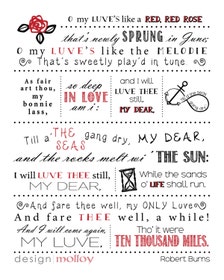 O MY LUVE'S LIKE A RED, RED ROSE
that's newly SPRUNG in June;
O my LUVE'S like the MELODIE
That's sweetly play'd in tune.
As fair
art thou,
my
bonnie
lass,
so deep
IN LOVE
am i:
and I will
LUVE THEE
still,
MY DEAR,
Till a' THE SEAS gang dry, MY DEAR,
And the rocks melt wi' THE SUN:
I will LUVE THEE still,
MY DEAR,
While the sands
O' LIFE shall run.
And fare thee well, my ONLY Luve
And fare THEE well, a while!
And I will come again,
MY LUVE,
Tho' it were
TEN THOUSAND MILES.
design molloy
Robert Burns